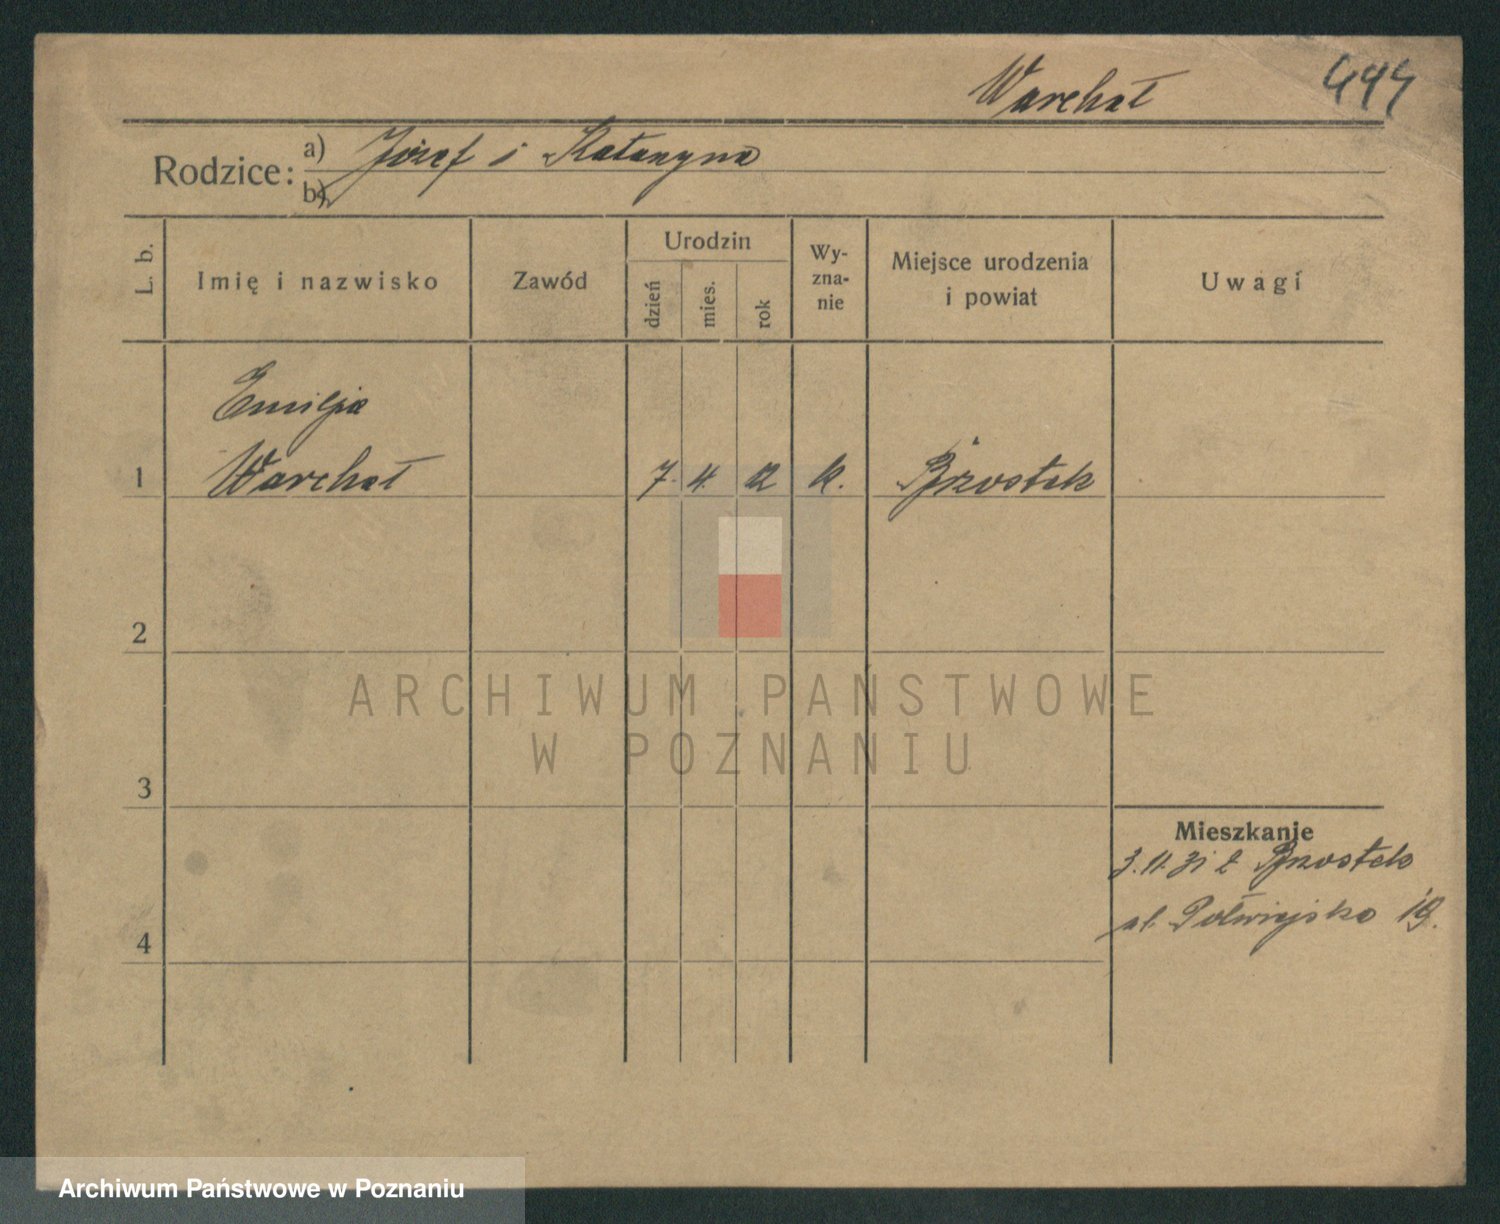 Warchał 444
Rodzice: a) Józef i Katarzyna
b)
L. b.
Imię i nazwisko
Zawód
Urodzin
dzień
mies.
rok
Wy-
zna-
nie
Miejsce urodzenia
i powiat
Uwagi
Emilja
1 Warchał 7. 4. 12 k. Brzostek
2
3
4
Mieszkanie
3.11.31 z Brzostek
ul. Półwiejska 19.
ARCHIWUM PAŃSTWOWE
W POZNANIU
Archiwum Państwowe w Poznaniu